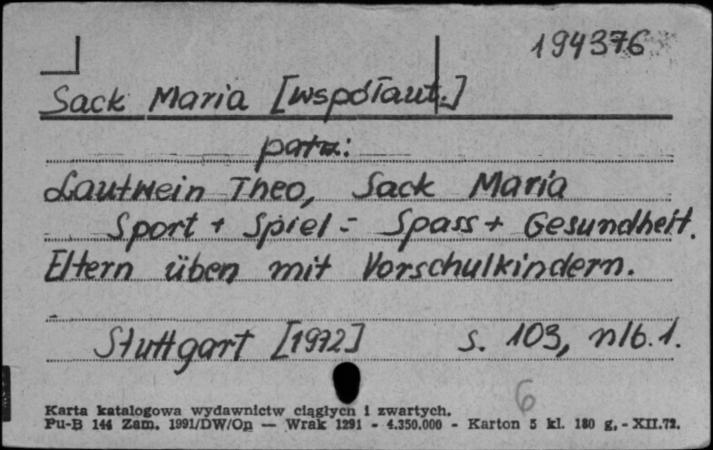 194376
Sack Maria [współaut.]
patrz:
Lautwein Theo, Sack Maria
Sport + Spiel = Spass + Gesundheit.
Eltern üben mit Vorschulkindern.
Stuttgart [1972] s. 103, nlb. 1.
6
Karta katalogowa wydawnictw ciągłych i zwartych.
Pu-B 144 Zam. 1991/DW/Op — Wrak 1291 - 4.350.000 - Karton 5 kl. 180 g. - XII.72.